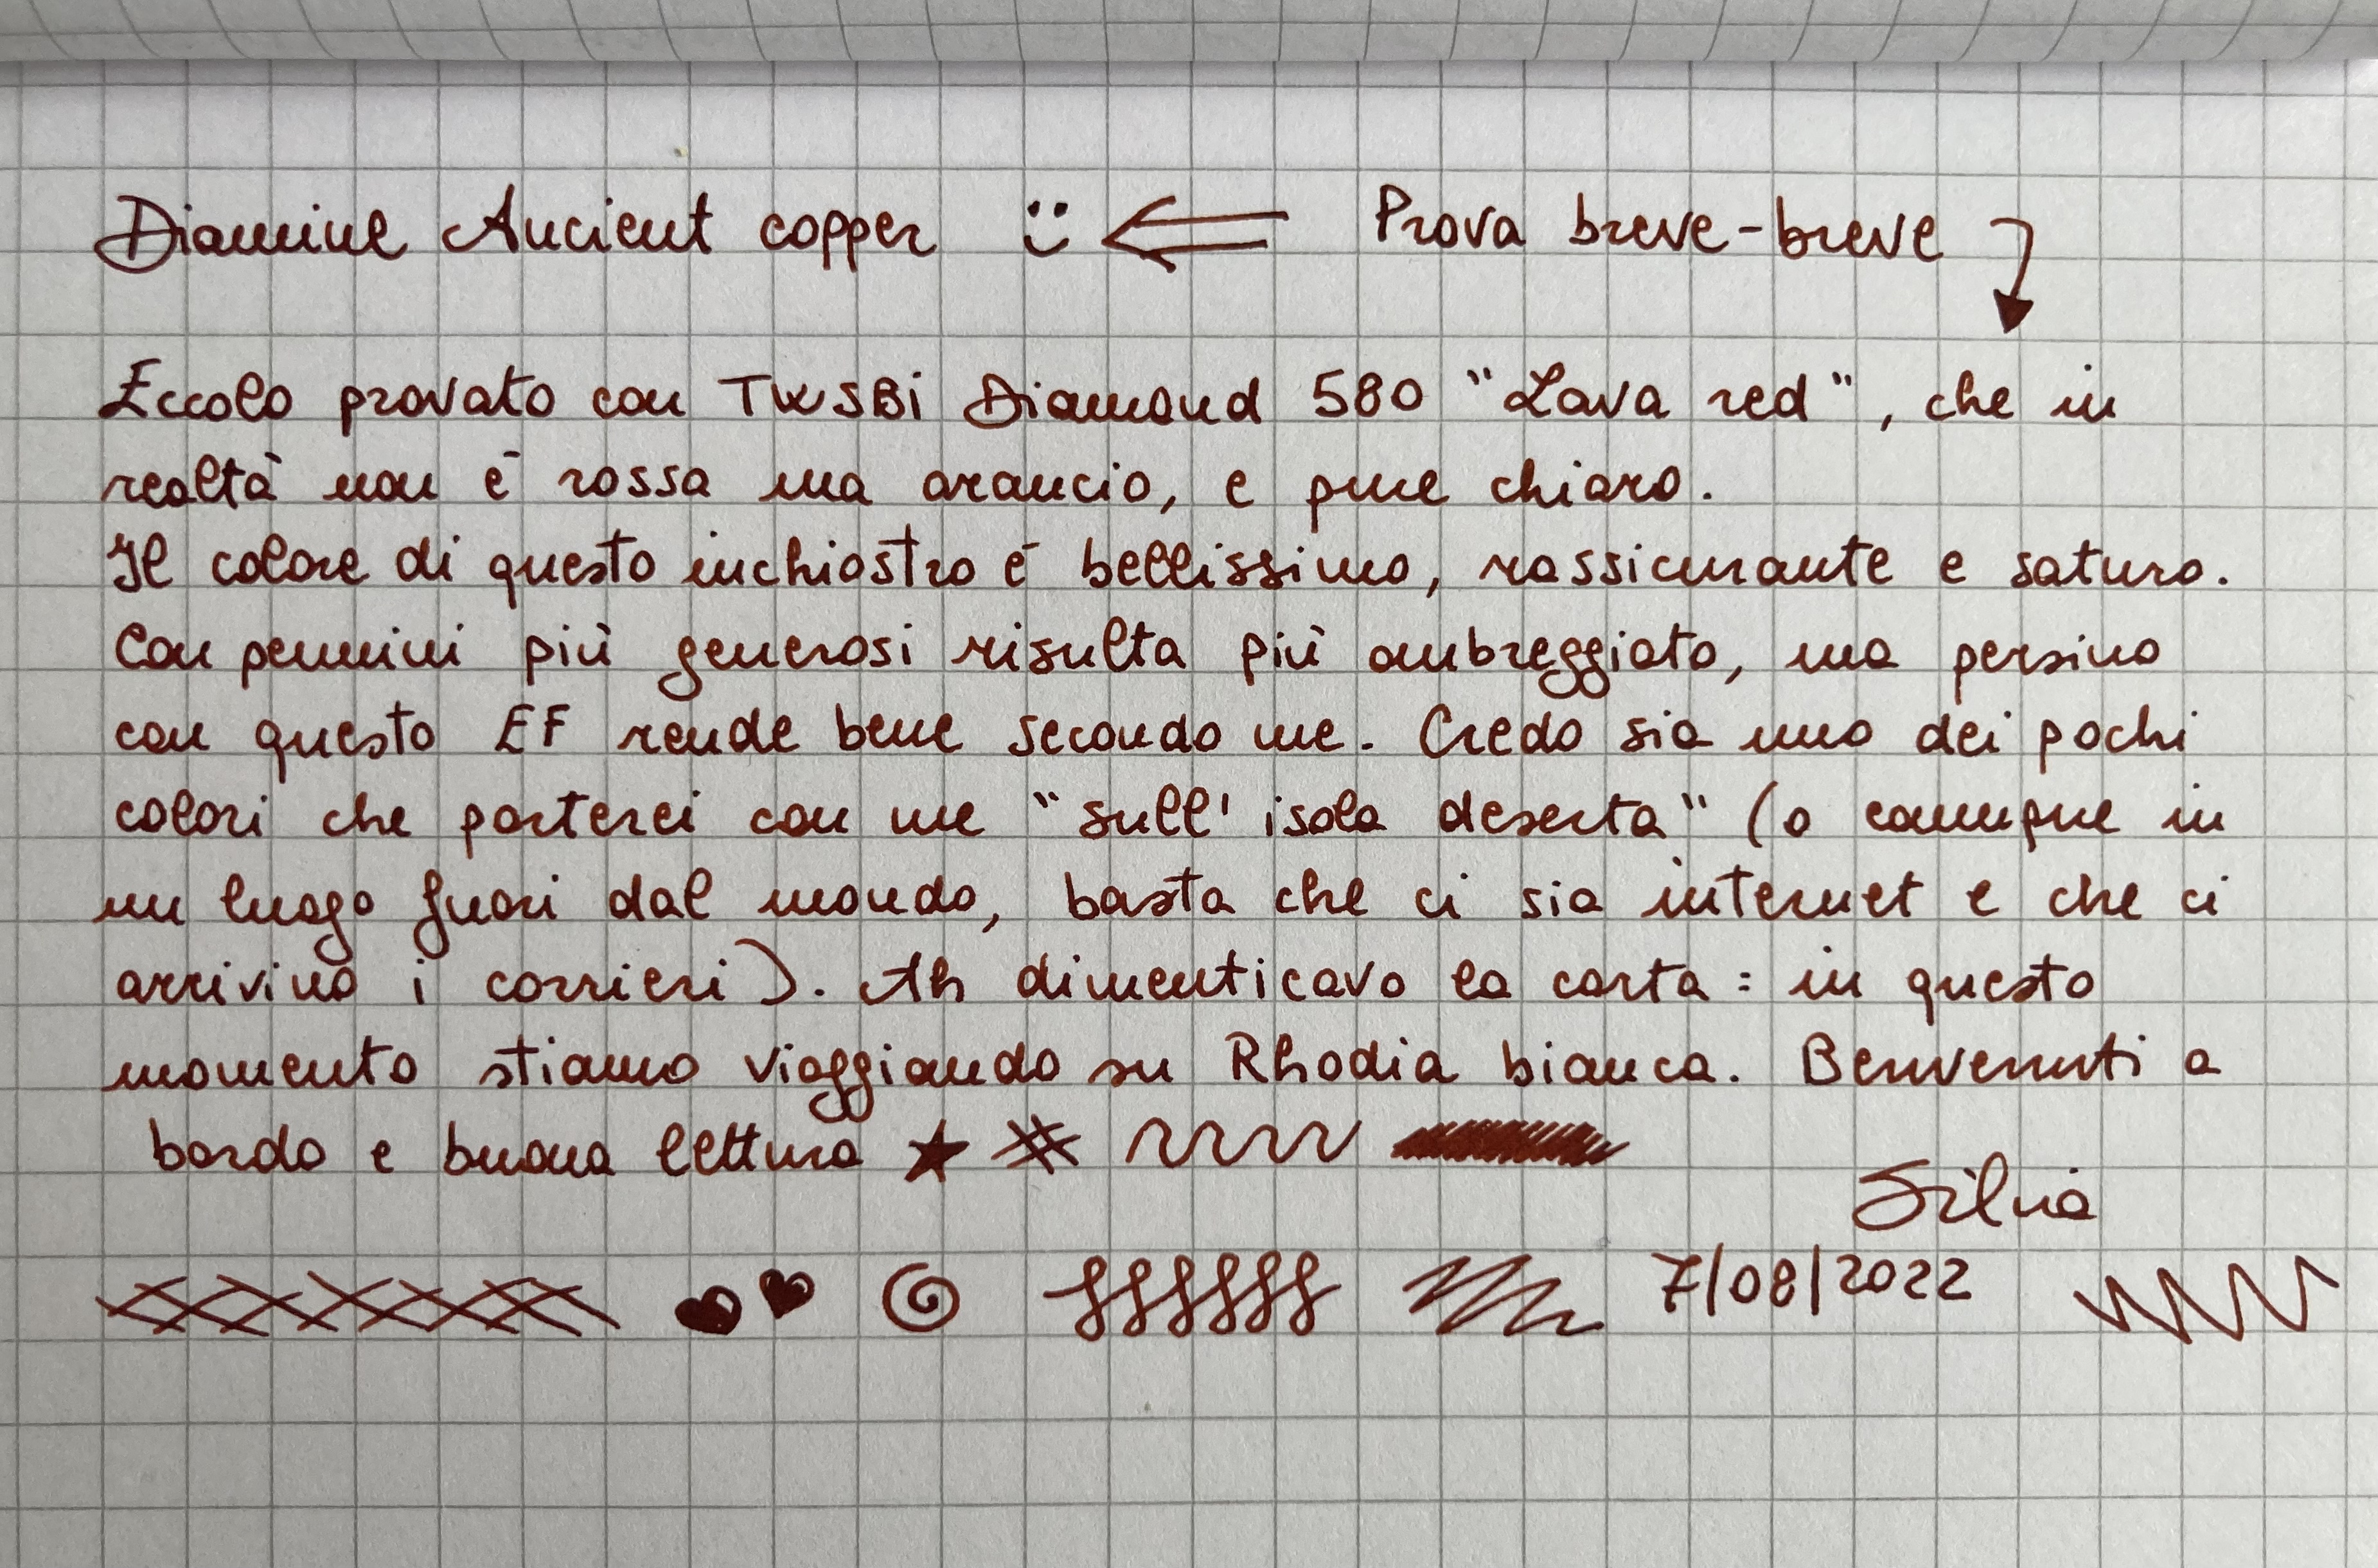 Diamine Ancient copper Prova breve-breve
Eccolo provato con TWSBi Diamond 580 "Lava red", che in
realtà non è rossa ma arancio, e pure chiaro.
Il colore di questo inchiostro è bellissimo, rassicurante e saturo.
Con pennini più generosi risulta più ombreggiato, ma persino
con questo EF rende bene secondo me. Credo sia uno dei pochi
colori che porterei con me "sull'isola deserta" (o comunque in
un luogo fuori dal mondo, basta che ci sia internet e che ci
arrivino i corrieri). Ah dimenticavo la carta: in questo
momento stiamo viaggiando su Rhodia bianca. Benvenuti a
bordo e buona lettura
Silvia
7/08/2022